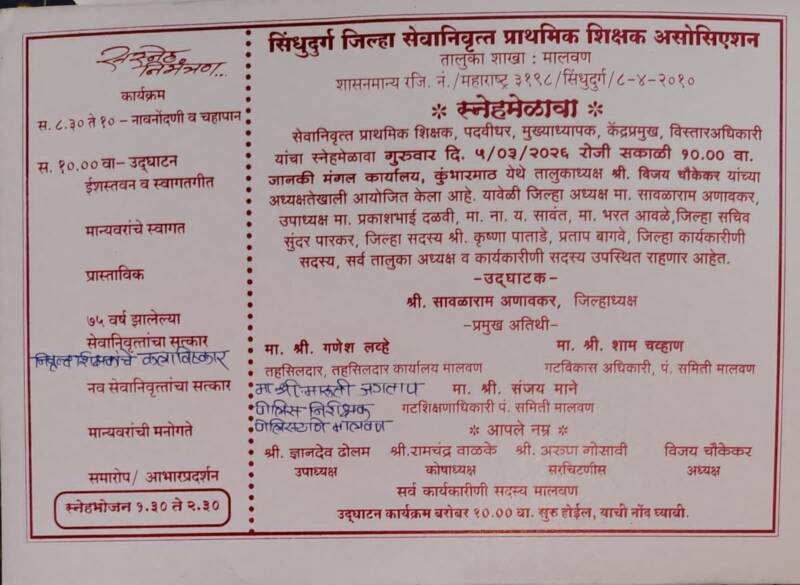 सस्नेह
निमंत्रण...
कार्यक्रम
स. ८.३० ते १० – नावनोंदणी व चहापान
स. १०.०० वा– उद्‌घाटन
ईशस्तवन व स्वागतगीत
मान्यवरांचे स्वागत
प्रास्ताविक
७५ वर्ष झालेल्या
सेवानिवृत्तांचा सत्कार
निवृत्त शिक्षकांचे कलाविष्कार
नव सेवानिवृत्तांचा सत्कार
मान्यवरांची मनोगते
समारोप/ आभारप्रदर्शन
स्नेहभोजन १.३० ते २.३०
सिंधुदुर्ग जिल्हा सेवानिवृत्त प्राथमिक शिक्षक असोसिएशन
तालुका शाखा : मालवण
शासनमान्य रजि. नं./महाराष्ट्र ३१९८/सिंधुदुर्ग/८-४-२०१०
❊ स्नेहमेळावा ❊
सेवानिवृत्त प्राथमिक शिक्षक, पदवीधर, मुख्याध्यापक, केंद्रप्रमुख, विस्तारअधिकारी
यांचा स्नेहमेळावा गुरुवार दि. ५/०३/२०२६ रोजी सकाळी १०.०० वा.
जानकी मंगल कार्यालय, कुंभारमाठ येथे तालुकाध्यक्ष श्री. विजय चौकेकर यांच्या
अध्यक्षतेखाली आयोजित केला आहे. यावेळी जिल्हा अध्यक्ष मा. सावळाराम अणावकर,
उपाध्यक्ष मा. प्रकाशभाई दळवी, मा. ना. य. सावंत, मा. भरत आवळे,जिल्हा सचिव
सुंदर पारकर, जिल्हा सदस्य श्री. कृष्णा पाताडे, प्रताप बागवे, जिल्हा कार्यकारीणी
सदस्य, सर्व तालुका अध्यक्ष व कार्यकारीणी सदस्य उपस्थित राहणार आहेत.
-उद्‌घाटक-
श्री. सावळाराम अणावकर, जिल्हाध्यक्ष
-प्रमुख अतिथी-
मा. श्री. गणेश लव्हे मा. श्री. शाम चव्हाण
तहसिलदार, तहसिलदार कार्यालय मालवण गटविकास अधिकारी, पं. समिती मालवण
मा. श्री. मारुती जगताप मा. श्री. संजय माने
पोलिस निरीक्षक गटशिक्षणाधिकारी पं. समिती मालवण
पोलिसठाणे मालवण ❊ आपले नम्र ❊
श्री. ज्ञानदेव ढोलम श्री.रामचंद्र वाळके श्री. अरुण गोसावी विजय चौकेकर
उपाध्यक्ष कोषाध्यक्ष सरचिटणीस अध्यक्ष
सर्व कार्यकारीणी सदस्य मालवण
उद्‌घाटन कार्यक्रम बरोबर १०.०० वा. सुरु होईल, याची नोंद घ्यावी.